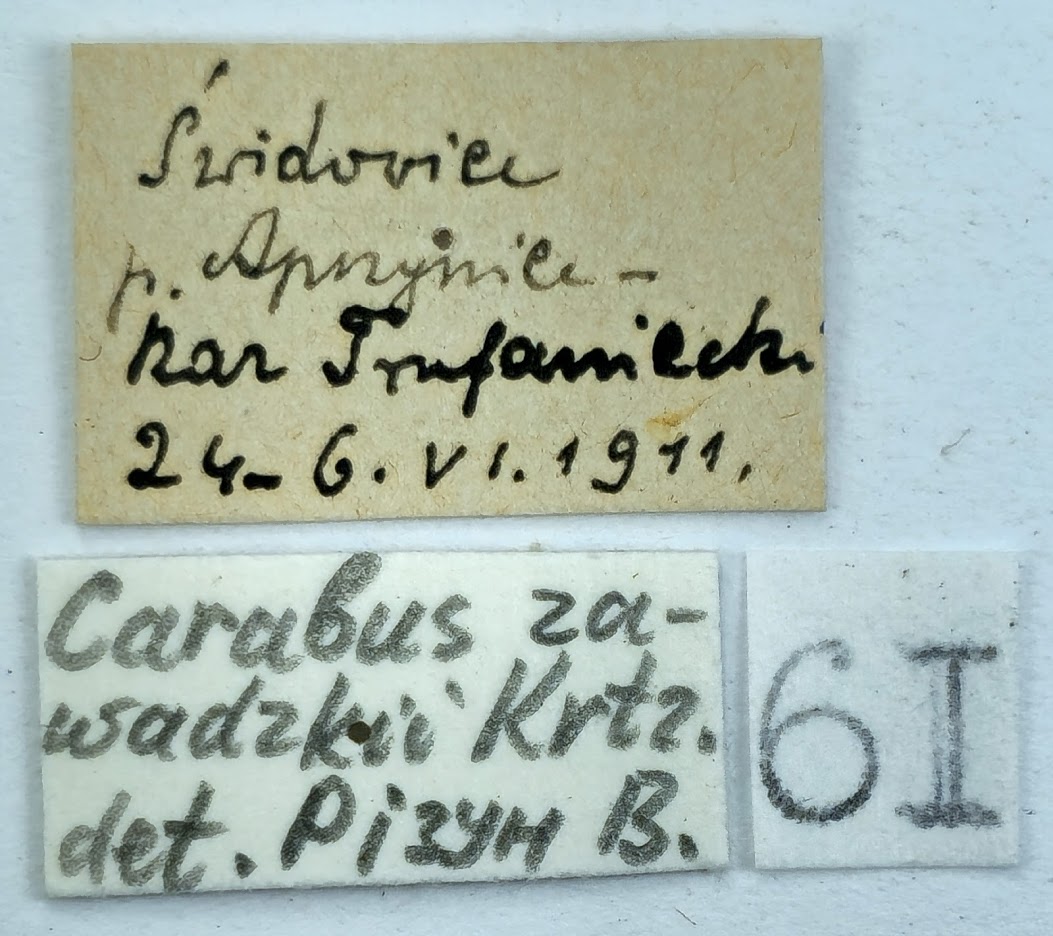 Świdoviec
p. Apszyniec -
kar Trufaniecki
24-6.VI.1911.
Carabus za-
wadzkii Krtz.
det. Різун В.
6I